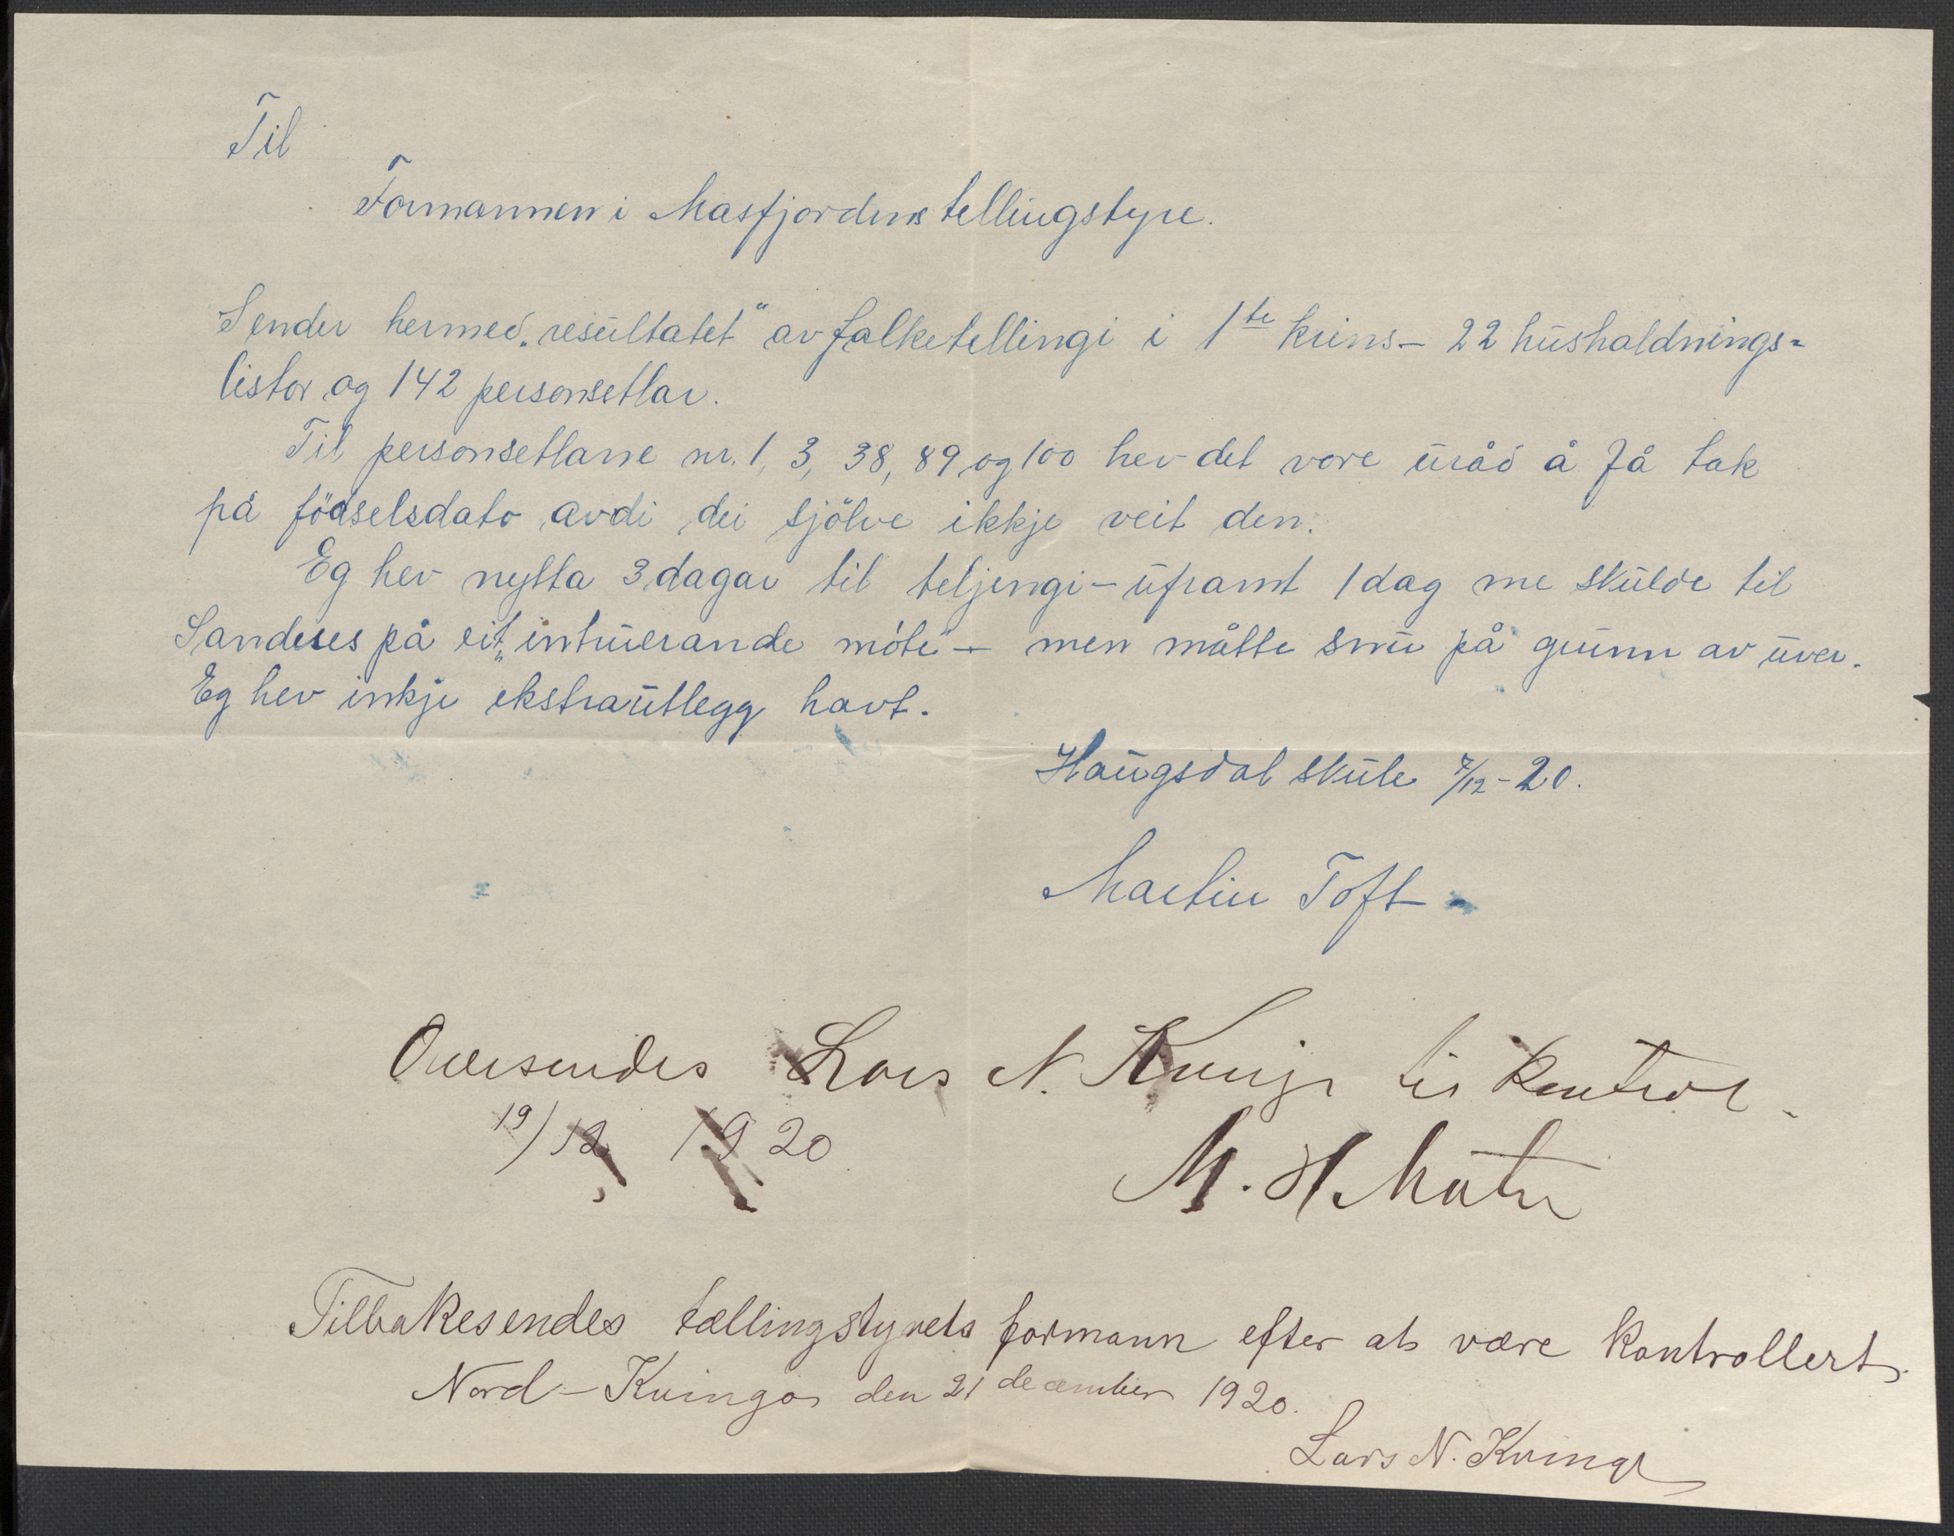 Til
Formannen i Masfjordens tellingstyre.
Sender hermed „resultatet" av folketellingi i 1ste krins – 22 hushaldnings-
listor og 142 personsetlar.
Til personsetlane nr. 1, 3, 38, 89 og 100 hev det vore uråd å få tak
på födselsdato avdi dei sjölve ikkje veit den.
Eg hev nytta 3 dagar til teljingi – uframt 1 dag me skulde til
Sandnes på eit „intruerande möte" – men måtte snu på grunn av uver.
Eg hev inkje ekstrautlegg havt.
Haugsdal skule 7/12 – 20.
Martin Toft
Oversendes Lars N. Kvinge til kontrol.
19/12 1920
M. H. Matre
Tilbakesendes tællingstyrets formann efter at være kontrollert.
Nord-Kvingo den 21 december 1920.
Lars N. Kvinge